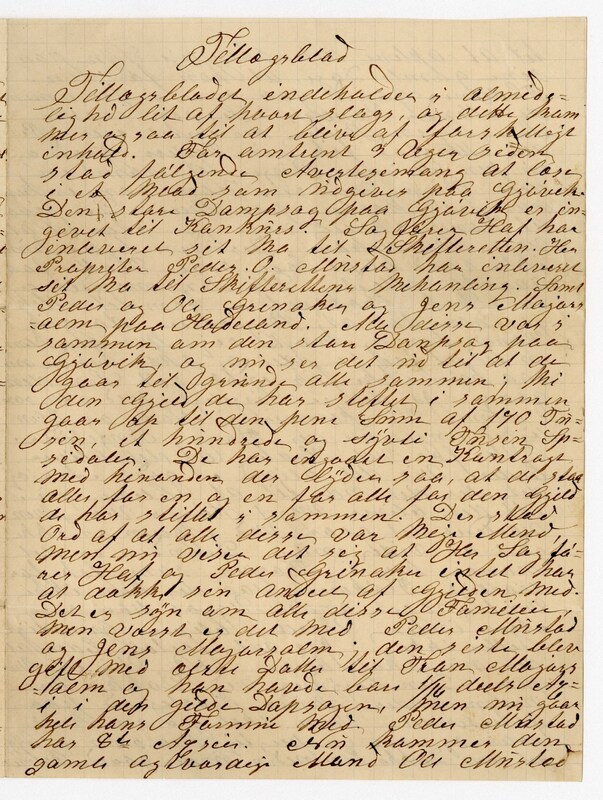 Tillægsblad
Tillægsbladet indeholder i almide-
lighd lit af hvort slags, og dette kom
mer ogsaa til at blive af forskelligt
inhold. For omtrent 3 Uger seden
stod følgende Avertesemang at læse
i et Blad som udgives paa Gjøvik.
Den store Dampsag paa Gjøvik er in-
gevet til Kunkurs. Sag fører Hof har
enleveret sit Bo til Skifteretten. Her
Propriter Peder O. Mustad har inleveret
set Bo til Skifterettens Behanling. Samt
Peder og Ole Grinaker og Jens Majors-
aem paa Hadeland. Alle disse var i
sammen om den store Danpsag paa
Gjøvik, og nu ser det ud til at de
gaar til grunde alle sammen; thi
den Gjeld de har stiftet i sammen
gaar op til den pene Sum af 170 Tu-
sen, et hundrede og søvti Tusen Sp-
sedaler. De har ingaaet en Kontragt
med hinanden der lyder saa, at de staa
alle for en og en for alle for den Gjeld
de har stiftet i sammen. Der stod
Ord af at alle disse var Mend,
men nu viser det seg at Her Sag fø-
rer Hof og Peder Grinaker intet har
at dække sen andeel af Gjelden med.
Det er søn om alle disse Familier,
men vorst er det med Peder Mustad
og Jens Majorsaem; den siste blev
gift med Datter til Fran Majors-
aem og han havde bare 1/16 deels A-
i i den gilde Dapsagen, men nu gaar
hele hans Formue med. Peder Mustad
har 8te Aysier. Nu kommer den
gamle agtvordige Mand Ole Mustad